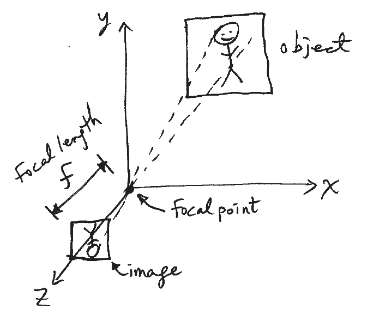 y
object
Focal length
f
x
Focal point
image
z